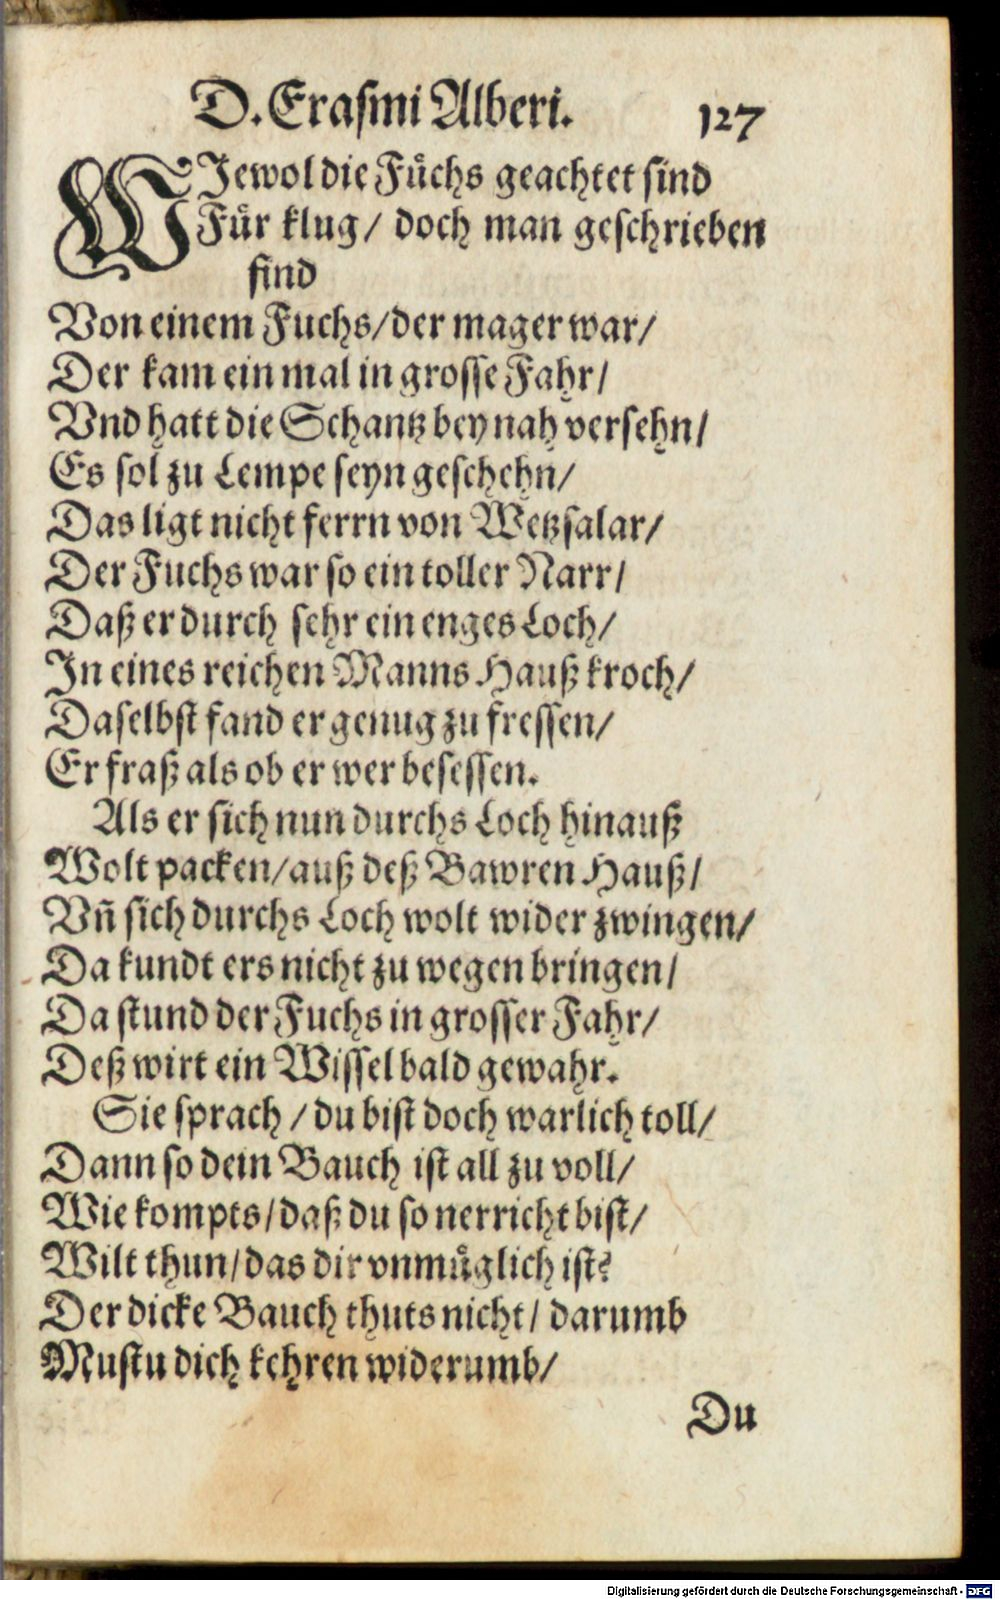 D. Erasmi Alberi. 127
WJewol die Fuͤchs geachtet sind
Fuͤr klug / doch man geschrieben
find
Von einem Fuchs / der mager war /
Der kam ein mal in grosse Fahr /
Vnd hatt die Schantz bey nah versehn /
Es sol zu Lempe seyn geschehn /
Das ligt nicht ferrn von Wetzsalar /
Der Fuchs war so ein toller Narr /
Daß er durch sehr ein enges Loch /
In eines reichen Manns Hauß kroch /
Daselbst fand er genug zu fressen /
Er fraß als ob er wer besessen.
Als er sich nun durchs Loch hinauß
Wolt packen / auß deß Bawren Hauß /
Vñ sich durchs Loch wolt wider zwingen /
Da kundt ers nicht zu wegen bringen /
Da stund der Fuchs in grosser Fahr /
Deß wirt ein Wissel bald gewahr.
Sie sprach / du bist doch warlich toll /
Dann so dein Bauch ist all zu voll /
Wie kompts / daß du so nerricht bist /
Wilt thun / das dir vnmuͤglich ist?
Der dicke Bauch thuts nicht / darumb
Mustu dich kehren widerumb /
Du
Digitalisierung gefördert durch die Deutsche Forschungsgemeinschaft - DFG